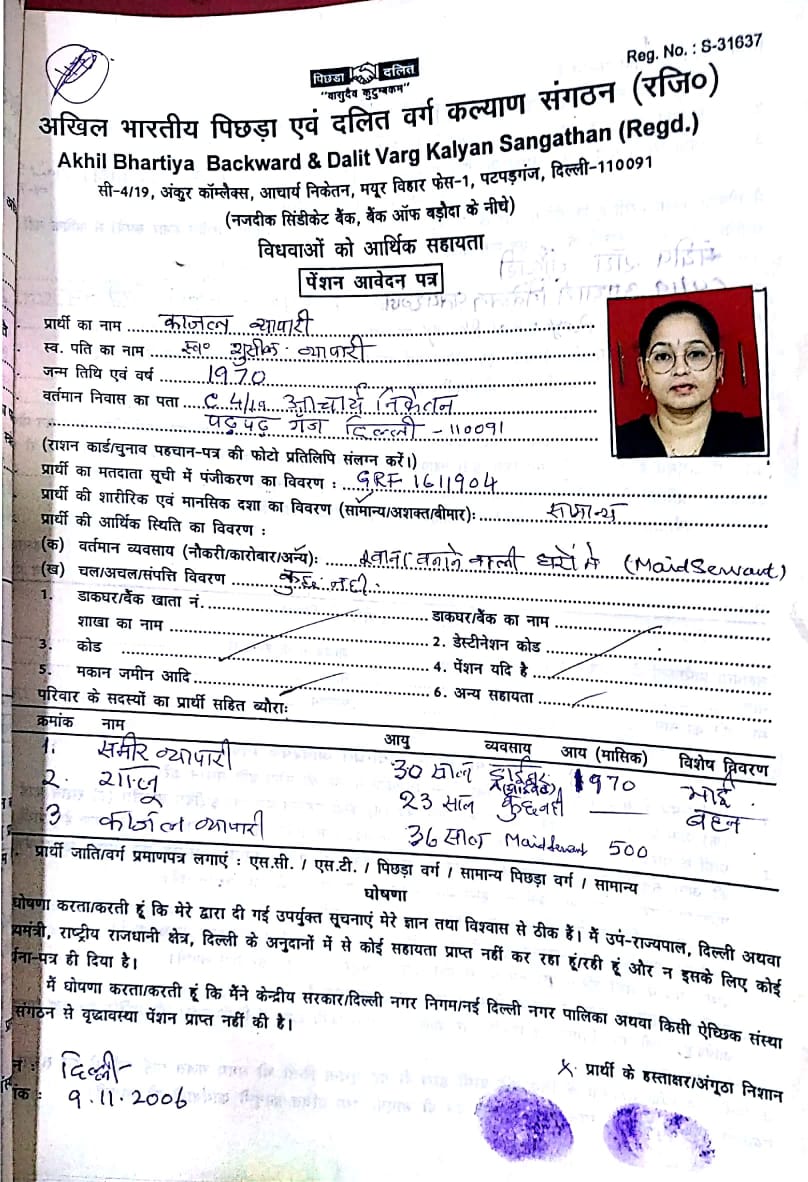 Reg. No. : S-31637
पिछड़ा दलित
"वासुदैव कुटुम्बकम"
अखिल भारतीय पिछड़ा एवं दलित वर्ग कल्याण संगठन (रजि०)
Akhil Bhartiya Backward & Dalit Varg Kalyan Sangathan (Regd.)
सी-4/19, अंकुर कॉम्लैक्स, आचार्य निकेतन, मयूर विहार फेस-1, पटपड़गंज, दिल्ली-110091
(नजदीक सिंडीकेट बैंक, बैंक ऑफ बड़ौदा के नीचे)
विधवाओं को आर्थिक सहायता
पेंशन आवेदन पत्र
प्रार्थी का नाम काजल व्यापारी
स्व. पति का नाम स्व० व्यापारी
जन्म तिथि एवं वर्ष 1970
वर्तमान निवास का पता C. 4/19 आचार्य निकेतन
पटपड़ गंज दिल्ली - 110091
(राशन कार्ड/चुनाव पहचान-पत्र की फोटो प्रतिलिपि संलग्न करें।)
प्रार्थी का मतदाता सूची में पंजीकरण का विवरण : GRF 1611904
प्रार्थी की शारीरिक एवं मानसिक दशा का विवरण (सामान्य/अशक्त/बीमार): सामान्य
प्रार्थी की आर्थिक स्थिति का विवरण :
(क) वर्तमान व्यवसाय (नौकरी/कारोबार/अन्य): खाना बनाने वाली घरों मे (Maid Servant)
(ख) चल/अचल/संपत्ति विवरण कुछ नही
1. डाकघर/बैंक खाता नं. डाकघर/बैंक का नाम
शाखा का नाम 2. डेस्टीनेशन कोड
3. कोड 4. पेंशन यदि है
5. मकान जमीन आदि 6. अन्य सहायता
परिवार के सदस्यों का प्रार्थी सहित ब्यौराः
क्रमांक नाम आयु व्यवसाय आय (मासिक) विशेष विवरण
1. समीर व्यापारी 30 साल ड्राईवर (प्राइवेट) 1970 भाई
2. शालू 23 साल कुछ नही बहन
3 काजल व्यापारी 36 साल Maid Servant 500
प्रार्थी जाति/वर्ग प्रमाणपत्र लगाएं : एस.सी. / एस.टी. / पिछड़ा वर्ग / सामान्य पिछड़ा वर्ग / सामान्य
घोषणा
घोषणा करता/करती हूं कि मेरे द्वारा दी गई उपर्युक्त सूचनाएं मेरे ज्ञान तथा विश्वास से ठीक हैं। मैं उप-राज्यपाल, दिल्ली अथवा
यमंत्री, राष्ट्रीय राजधानी क्षेत्र, दिल्ली के अनुदानों में से कोई सहायता प्राप्त नहीं कर रहा हूं/रही हूं और न इसके लिए कोई
र्थना-पत्र ही दिया है।
मैं घोषणा करता/करती हूं कि मैंने केन्द्रीय सरकार/दिल्ली नगर निगम/नई दिल्ली नगर पालिका अथवा किसी ऐच्छिक संस्था
संगठन से वृद्धावस्था पेंशन प्राप्त नहीं की है।
न : दिल्ली
x. प्रार्थी के हस्ताक्षर/अंगूठा निशान
क : 9.11.2006